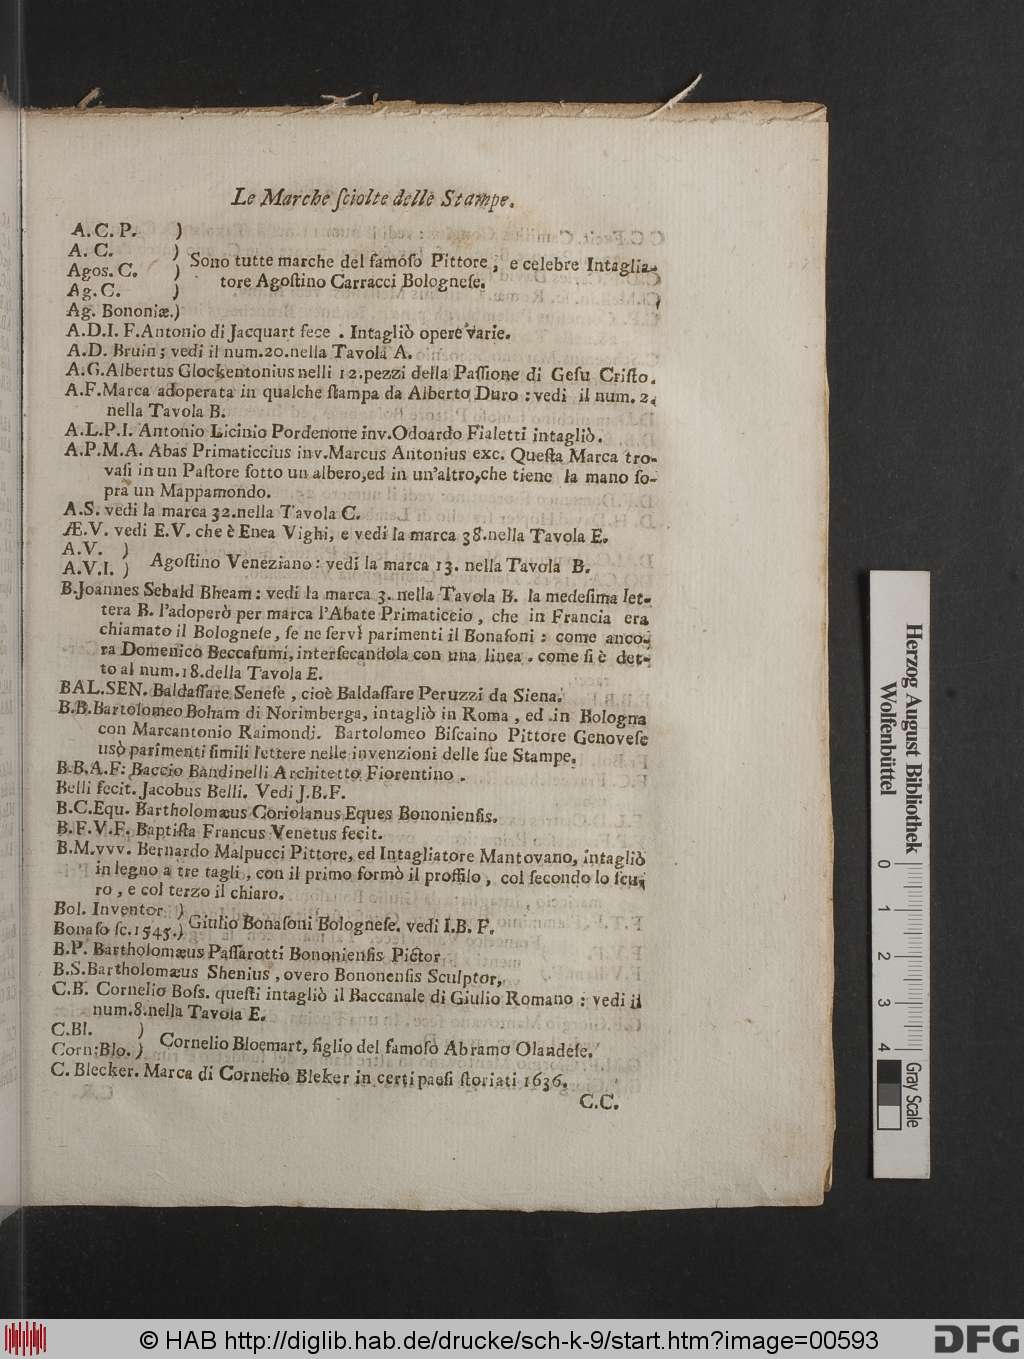 Le Marche ſciolte delle Stampe.
A. C. P. )
A. C. )
Agos. C. )
Ag. C. )
Ag. Bononiæ.)
Sono tutte marche del famoſo Pittore, e celebre Intaglia-
tore Agoſtino Carracci Bologneſe.
A.D.I. F. Antonio di Jacquart fece . Intagliò opere varie.
A.D. Bruin; vedi il num.20.nella Tavola A.
A.G. Albertus Glockentonius nelli 12.pezzi della Paſſione di Geſu Criſto.
A.F. Marca adoperata in qualche ſtampa da Alberto Duro : vedi il num. 2.
nella Tavola B.
A.L.P.I. Antonio Licinio Pordenone inv. Odoardo Fialetti intagliò.
A.P.M.A. Abas Primaticcius inv. Marcus Antonius exc. Queſta Marca tro-
vaſi in un Paſtore ſotto un albero, ed in un'altro, che tiene la mano ſo-
pra un Mappamondo.
A.S. vedi la marca 32.nella Tavola C.
Æ.V. vedi E.V. che è Enea Vighi, e vedi la marca 38.nella Tavola E.
A.V. )
A.V.I. )
Agoſtino Veneziano : vedi la marca 13. nella Tavola B.
B. Joannes Sebald Bheam : vedi la marca 3. nella Tavola B. la medeſima let-
tera B. l'adoperò per marca l'Abate Primaticcio, che in Francia era
chiamato il Bologneſe, ſe ne ſervì parimenti il Bonaſoni : come anco-
ra Domenico Beccafumi, interſecandola con una linea . come ſi è det-
to al num.18.della Tavola E.
BAL.SEN. Baldaſſare Seneſe, cioè Baldaſſare Peruzzi da Siena.
B.B. Bartolomeo Boham di Norimberga, intagliò in Roma, ed in Bologna
con Marcantonio Raimondi. Bartolomeo Biſcaino Pittore Genoveſe
usò parimenti ſimili lettere nelle invenzioni delle ſue Stampe.
B.B.A.F: Baccio Bandinelli Architetto Fiorentino .
Belli fecit. Jacobus Belli. Vedi J.B.F.
B.C.Equ. Bartholomæus Coriolanus Eques Bononienſis.
B.F.V.F. Baptiſta Francus Venetus fecit.
B.M.vvv. Bernardo Malpucci Pittore, ed Intagliatore Mantovano, intagliò
in legno a tre tagli, con il primo formò il proffilo, col ſecondo lo ſcu-
ro, e col terzo il chiaro.
Bol. Inventor )
Bonaſo ſc.1545.)
Giulio Bonaſoni Bologneſe. vedi I.B. F.
B.P. Bartholomæus Paſſarotti Bononienſis Pictor
B.S. Bartholomæus Shenius, overo Bononenſis Sculptor,
C.B. Cornelio Boſs. queſti intagliò il Baccanale di Giulio Romano : vedi il
num.8.nella Tavola E.
C.Bl. )
Corn:Blo. )
Cornelio Bloemart, figlio del famoſo Abramo Olandeſe.
C. Blecker. Marca di Cornelio Bleker in certi paeſi ſtoriati 1636.
C.C.
Herzog August Bibliothek
Wolfenbüttel
0 1 2 3 4
Gray Scale
© HAB http://diglib.hab.de/drucke/sch-k-9/start.htm?image=00593
DFG